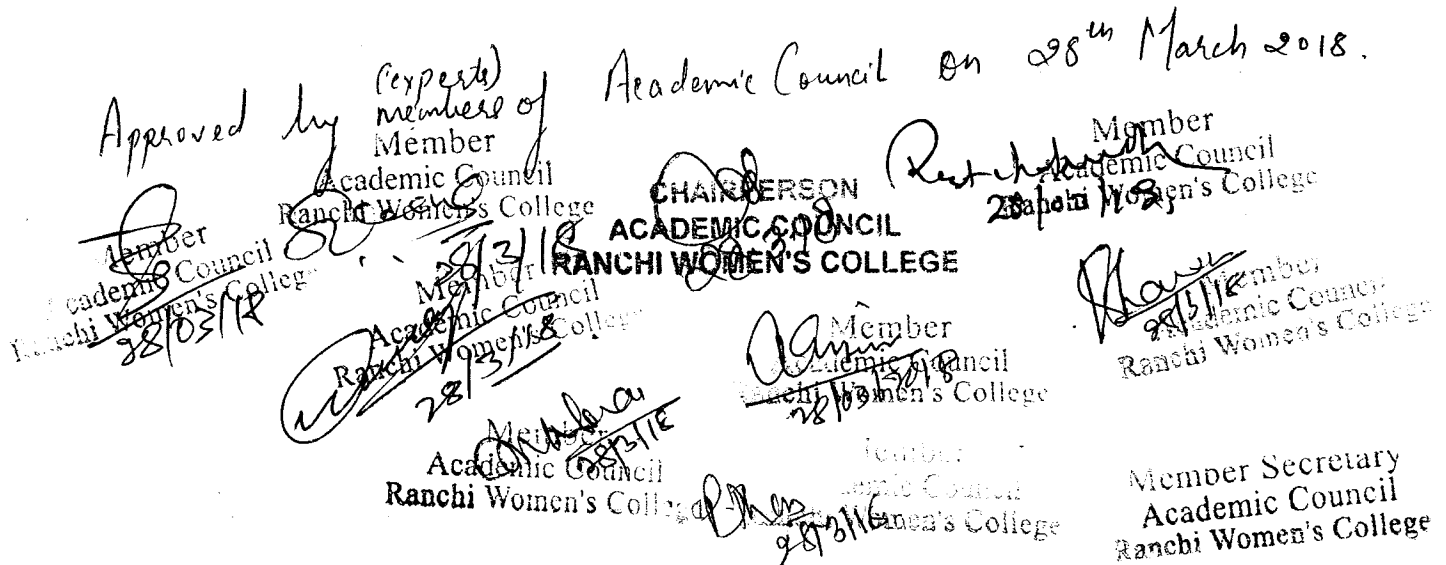 Approved by (experts) members of Academic Council on 28th March 2018.
Member
Academic Council
Ranchi Women's College
28/3/18
Member
Academic Council
Ranchi Women's College
28/03/18
CHAIRPERSON
ACADEMIC COUNCIL
RANCHI WOMEN'S COLLEGE
Member
Academic Council
Ranchi Women's College
Member
Academic Council
Ranchi Women's College
28/3/18
Member
Academic Council
Ranchi Women's College
28/03/2018
Member
Academic Council
Ranchi Women's College
28/3/18
Member
Academic Council
Ranchi Women's College
28/3/18
Member
Academic Council
Women's College
28/3/18
Member Secretary
Academic Council
Ranchi Women's College